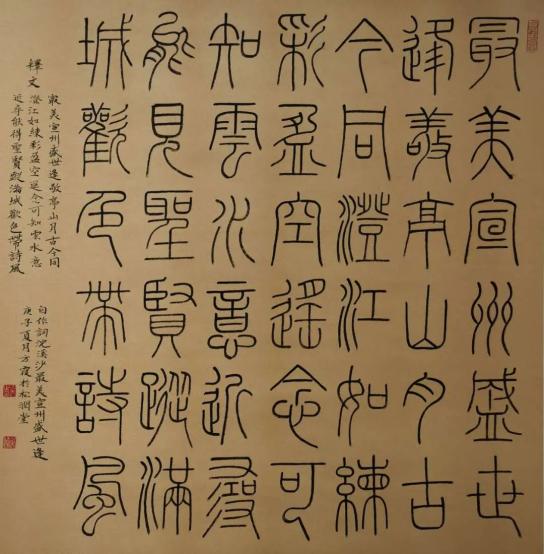 最美宣州盛世
逢敬亭山月古
今同澄江如練
彩盈空遥念可
知雲水意近尋
能見聖賢蹤滿
城歡色帶詩風
釋文
最美宣州盛世逢敬亭山月古今同
澄江如練彩盈空遥念可知雲水意
近尋能得聖賢蹤滿城歡色帶詩風
自作詞浣溪沙最美宣州盛世逢
庚子夏月方霞於松潤堂